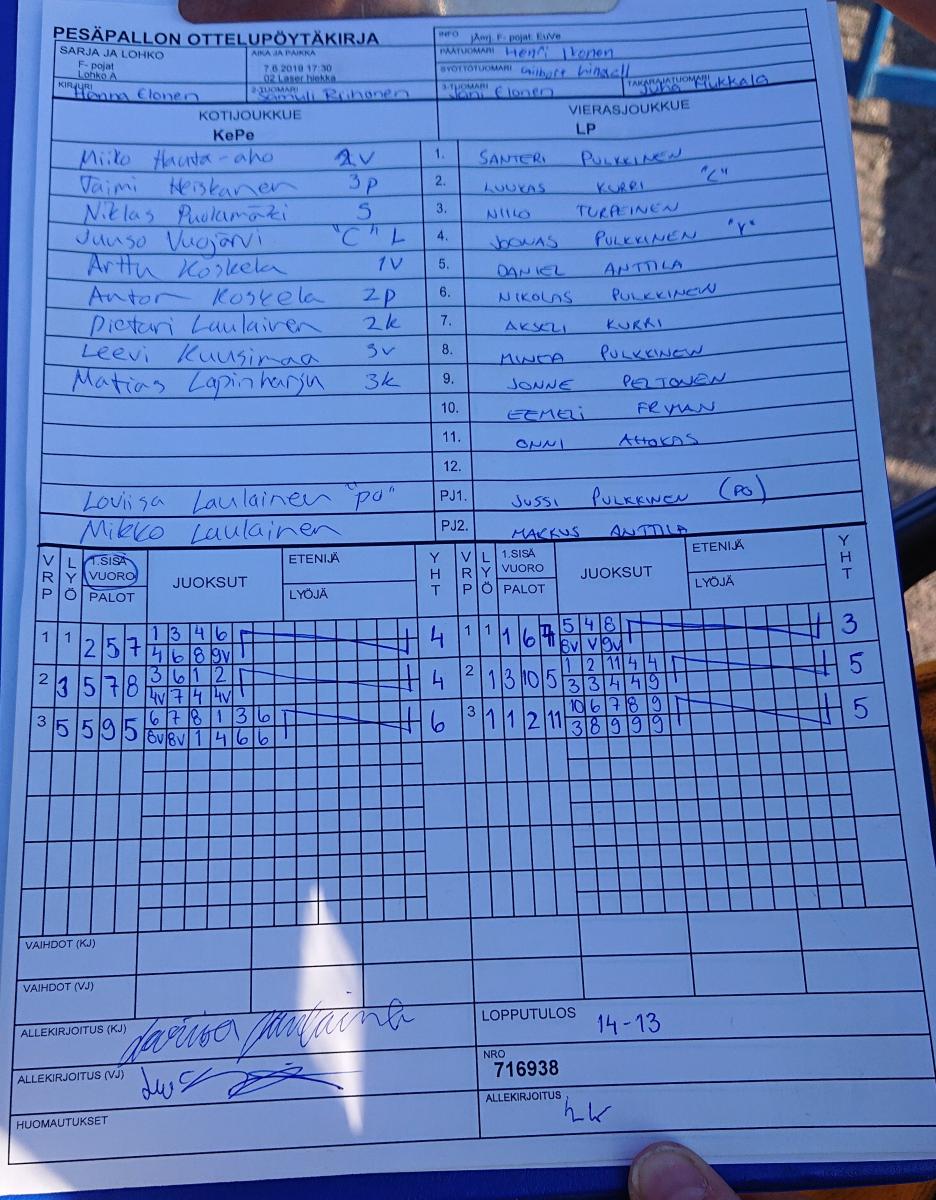 PESÄPALLON OTTELUPÖYTÄKIRJA
SARJA JA LOHKO
F- pojat
Lohko A
AIKA JA PAIKKA
7.6.2019 17:30
02 Laser hiekka
INFO jAnrj. F- pojat. EuVe
PÄÄTUOMARI Henri Ikonen
SYÖTTÖTUOMARI
KIRJURI Hanna Elonen
2-TUOMARI Samuli Riihonen
3-TUOMARI Jani Elonen
TAKARAJATUOMARI Juha Mukkala
KOTIJOUKKUE
KePe
VIERASJOUKKUE
LP
Miiko Hauta-aho 2V 1. SANTERI PULKKINEN
Taimi Heiskanen 3p 2. LUUKAS KURRI "C"
Niklas Puolamäki S 3. NIILO TURPEINEN
Juuso Vuojärvi "C" L 4. JOONAS PULKKINEN "V"
Arttu Koskela 1V 5. DANIEL ANTTILA
Anton Koskela 2p 6. NIKOLAS PULKKINEN
Pietari Laulainen 2k 7. AKSELI KURRI
Leevi Kuusimaa 3v 8. MINEA PULKKINEN
Matias Lapinharju 3k 9. JONNE PELTONEN
10. EEMELI FRYMAN
11. ONNI AHOKAS
12.
Loviisa Laulainen "po" PJ1. JUSSI PULKKINEN (PO)
Mikko Laulainen PJ2. MARKUS ANTTILA
VRP LYÖ 1.SISÄ VUORO PALOT JUOKSUT ETENIJÄ LYÖJÄ YHT VRP LYÖ 1.SISÄ VUORO PALOT JUOKSUT ETENIJÄ LYÖJÄ YHT
1 1 2 5 7 1 3 4 6 4 1 1 1 6 7 5 4 8 3
4 6 8 9V 8V V 9V
2 3 5 7 8 3 6 1 2 4 2 1 3 10 5 1 2 11 4 4 5
4V 7 4 4V 3 3 4 4 9
3 5 5 9 5 6 7 8 1 3 6 6 3 1 1 2 11 10 6 7 8 9 5
8V 8V 1 4 6 6 3 8 9 9 9
VAIHDOT (KJ)
VAIHDOT (VJ)
ALLEKIRJOITUS (KJ) Loviisa Laulainen
LOPPUTULOS 14-13
ALLEKIRJOITUS (VJ)
NRO
716938
HUOMAUTUKSET
ALLEKIRJOITUS